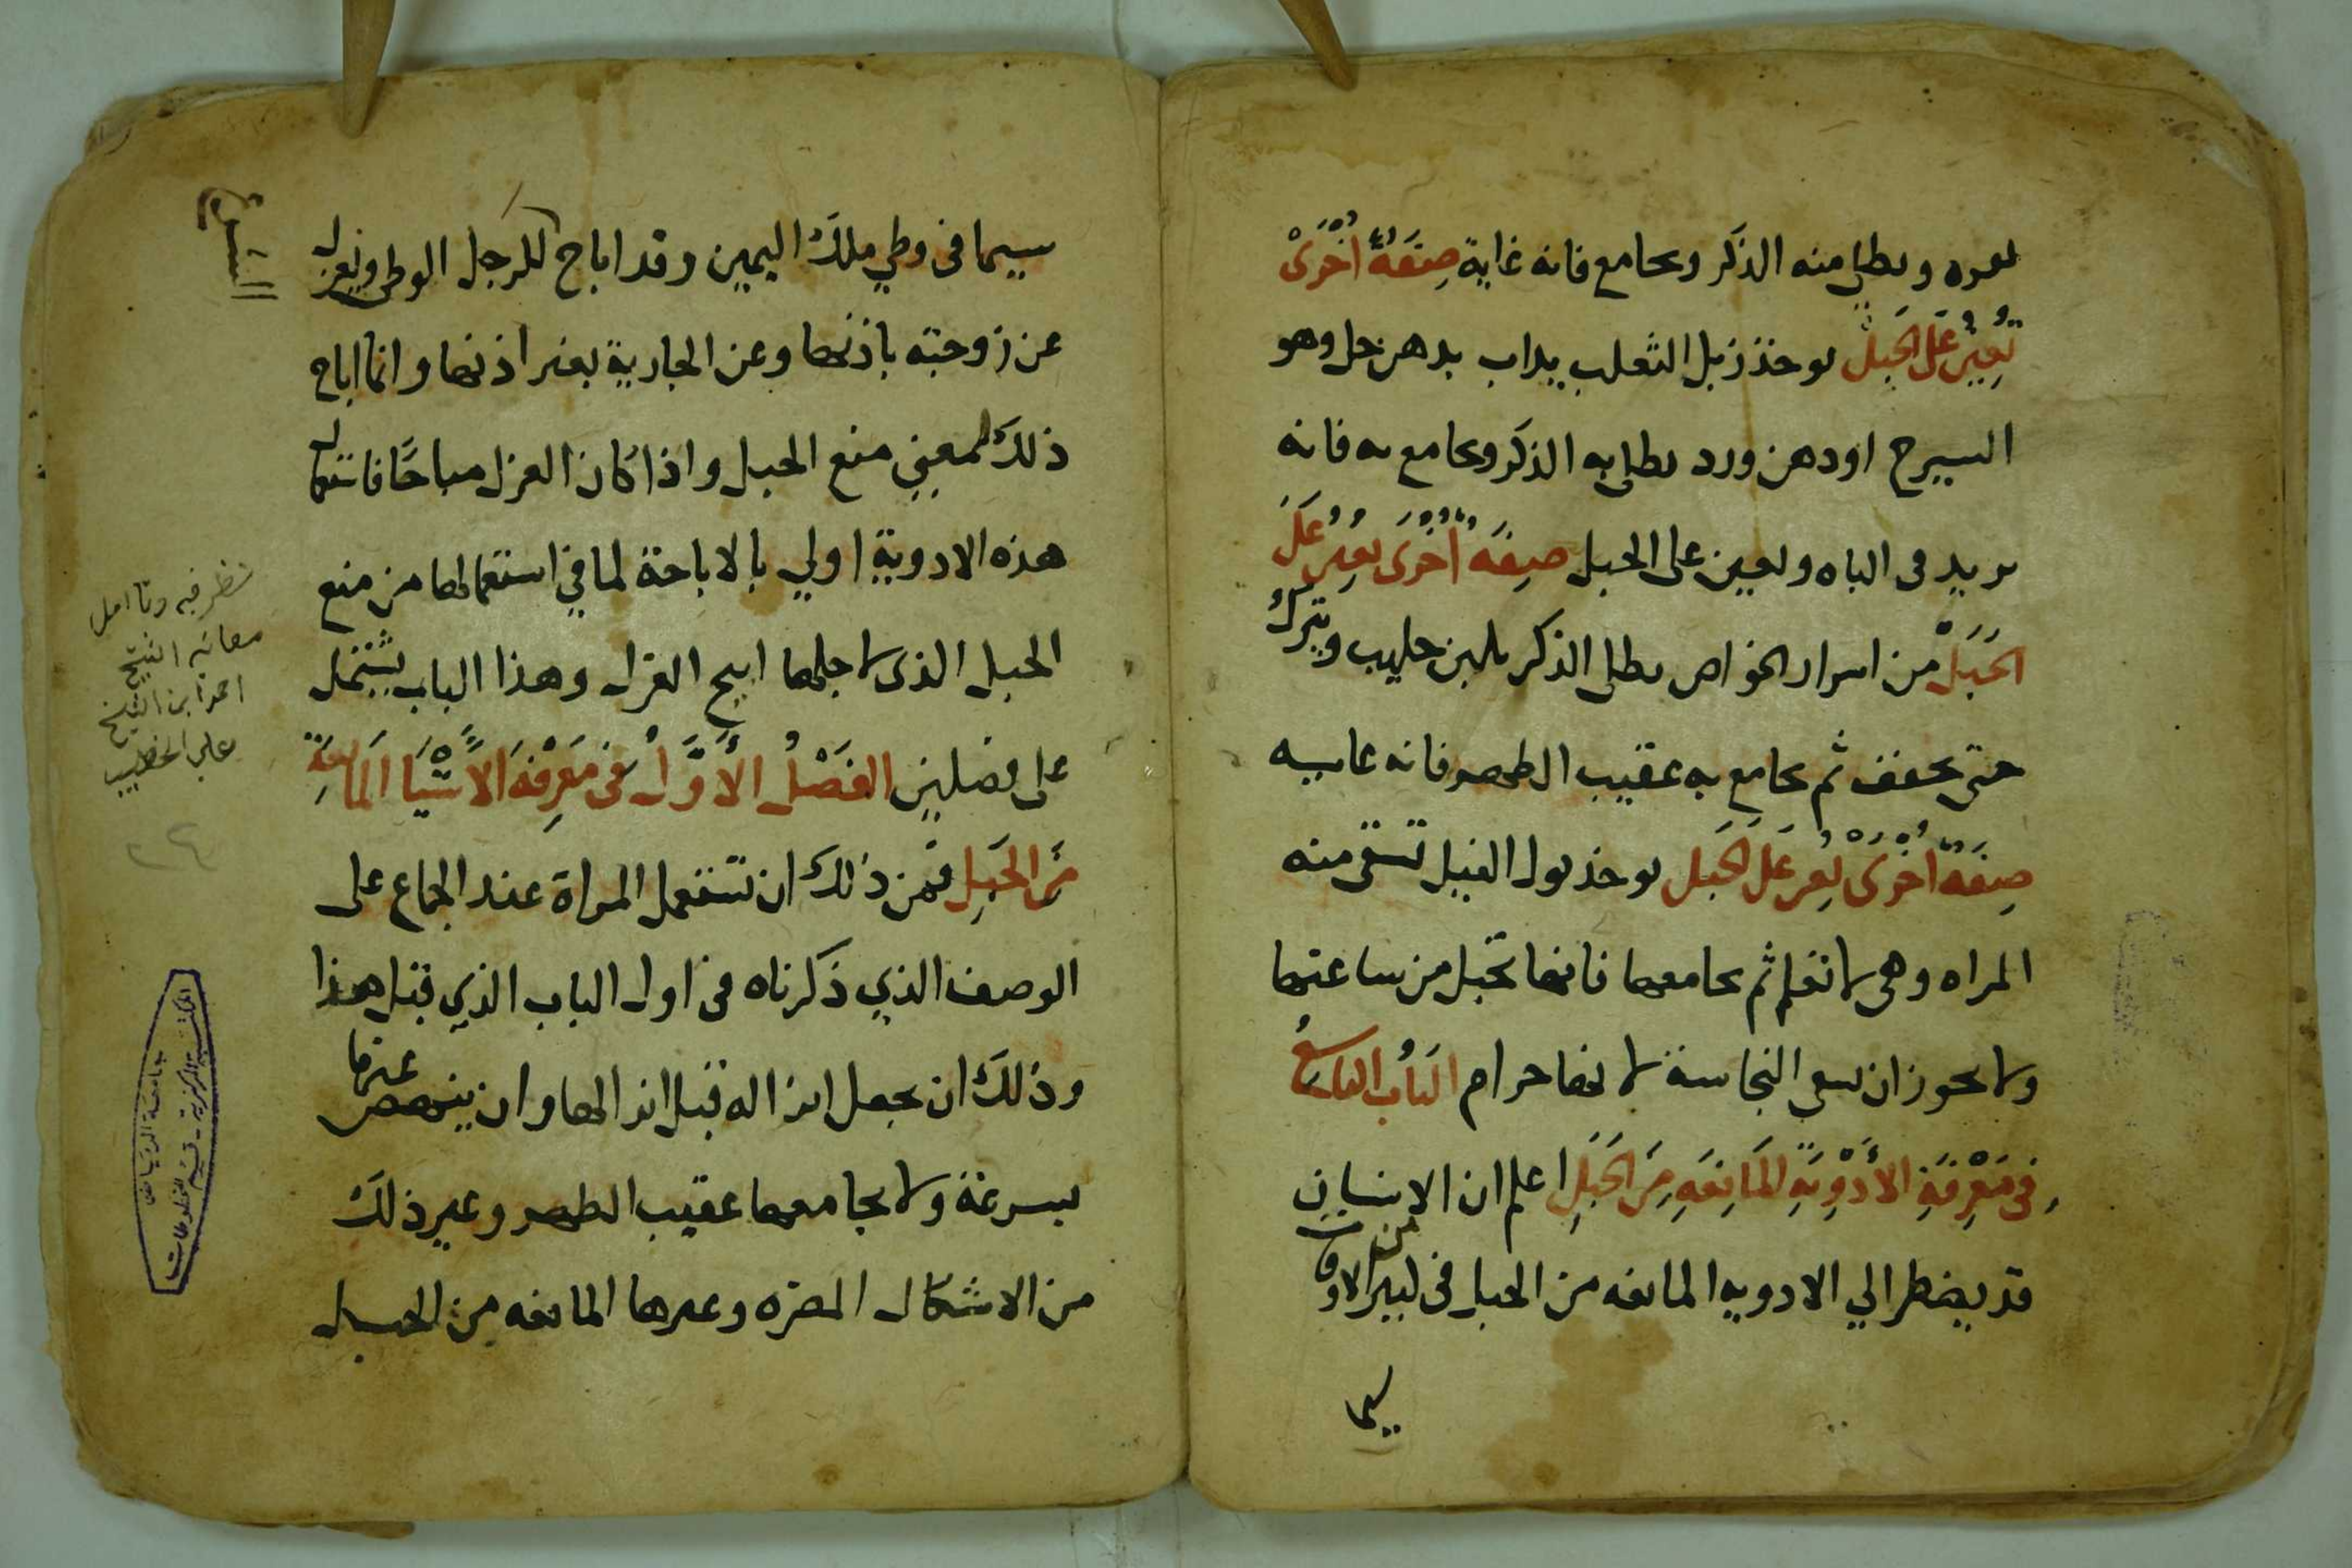 ويطلي منه الذكر ويجامع فانه غاية صِفَةٌ اُخْرَىْ
تُعِيْنُ عَلَى الحَبَلْ يوخذ زبل الثعلب يداب بدهن حل وهو
السيرج اودهن ورد يطلى به الذكر ويجامع به فانه
يزيد في الباه ويعين على الحبل صِفَه اُخْرَى يُعِين عَلَى
الحَبَلْ من اسرار الخواص يطلى الذكر بلبن حليب ويترك
حتى يجفف ثم يجامع به عقيب الطهر فانه
صِفَةٌ اُخْرَىْ يُعِين عَلَى الحَبَل يوخذ بول الفيل تسقى منه
المراه وهي لا تعلم ثم يجامعها فانها تحبل من ساعتها
ولا يجوز ان يسقى النجاسة لانها حرام البَابُ التاسِعُ
فى مَعْرِفَةِ الأَدْوِيَةِ المَانِعَةِ مِنَ الحَبَلِ اعلم ان الإنسان
قد يضطر الي الادويه المانعه من الحبل فى كثير من الاوقات
سيما
سيما فى وطي ملك اليمين وقد اباح للرجل الوطى ويعزل
عن زوجته باذنها وعن الجارية بغير اذنها وانما اباح
ذلك لمعنى منع الحبل واذا كان العزل مباحًا فاستعمال
هذه الادوية اولي بالاباحة لما في استعمالها من منع
الحبل الذى لاجلها ابيح العزل وهذا الباب يشتمل
على فصلين الفَصْلُ الأَوَّلُ فى مَعرِفَة الأَشْيَا المَانِعَةِ
مِنَ الحَبَلِ فمن ذلك ان تستعمل المراة عند الجماع على
الوصف الذي ذكرناه فى اول الباب الذي قبل هذا
وذلك ان يجعل انزاله قبل انزالها وان ينهض عنها
بسرعة ولا يجامعها عقيب الطهر وغير ذلك
من الاشكال المضره وغيرها المانعه من الحبل
نظر فيه وتاامل
معانيه الشيخ
احمد ابن الشيخ
علي الخطيب
٢٤
جامعة الرياض
المكتبة المركزية - قسم المخطوطات